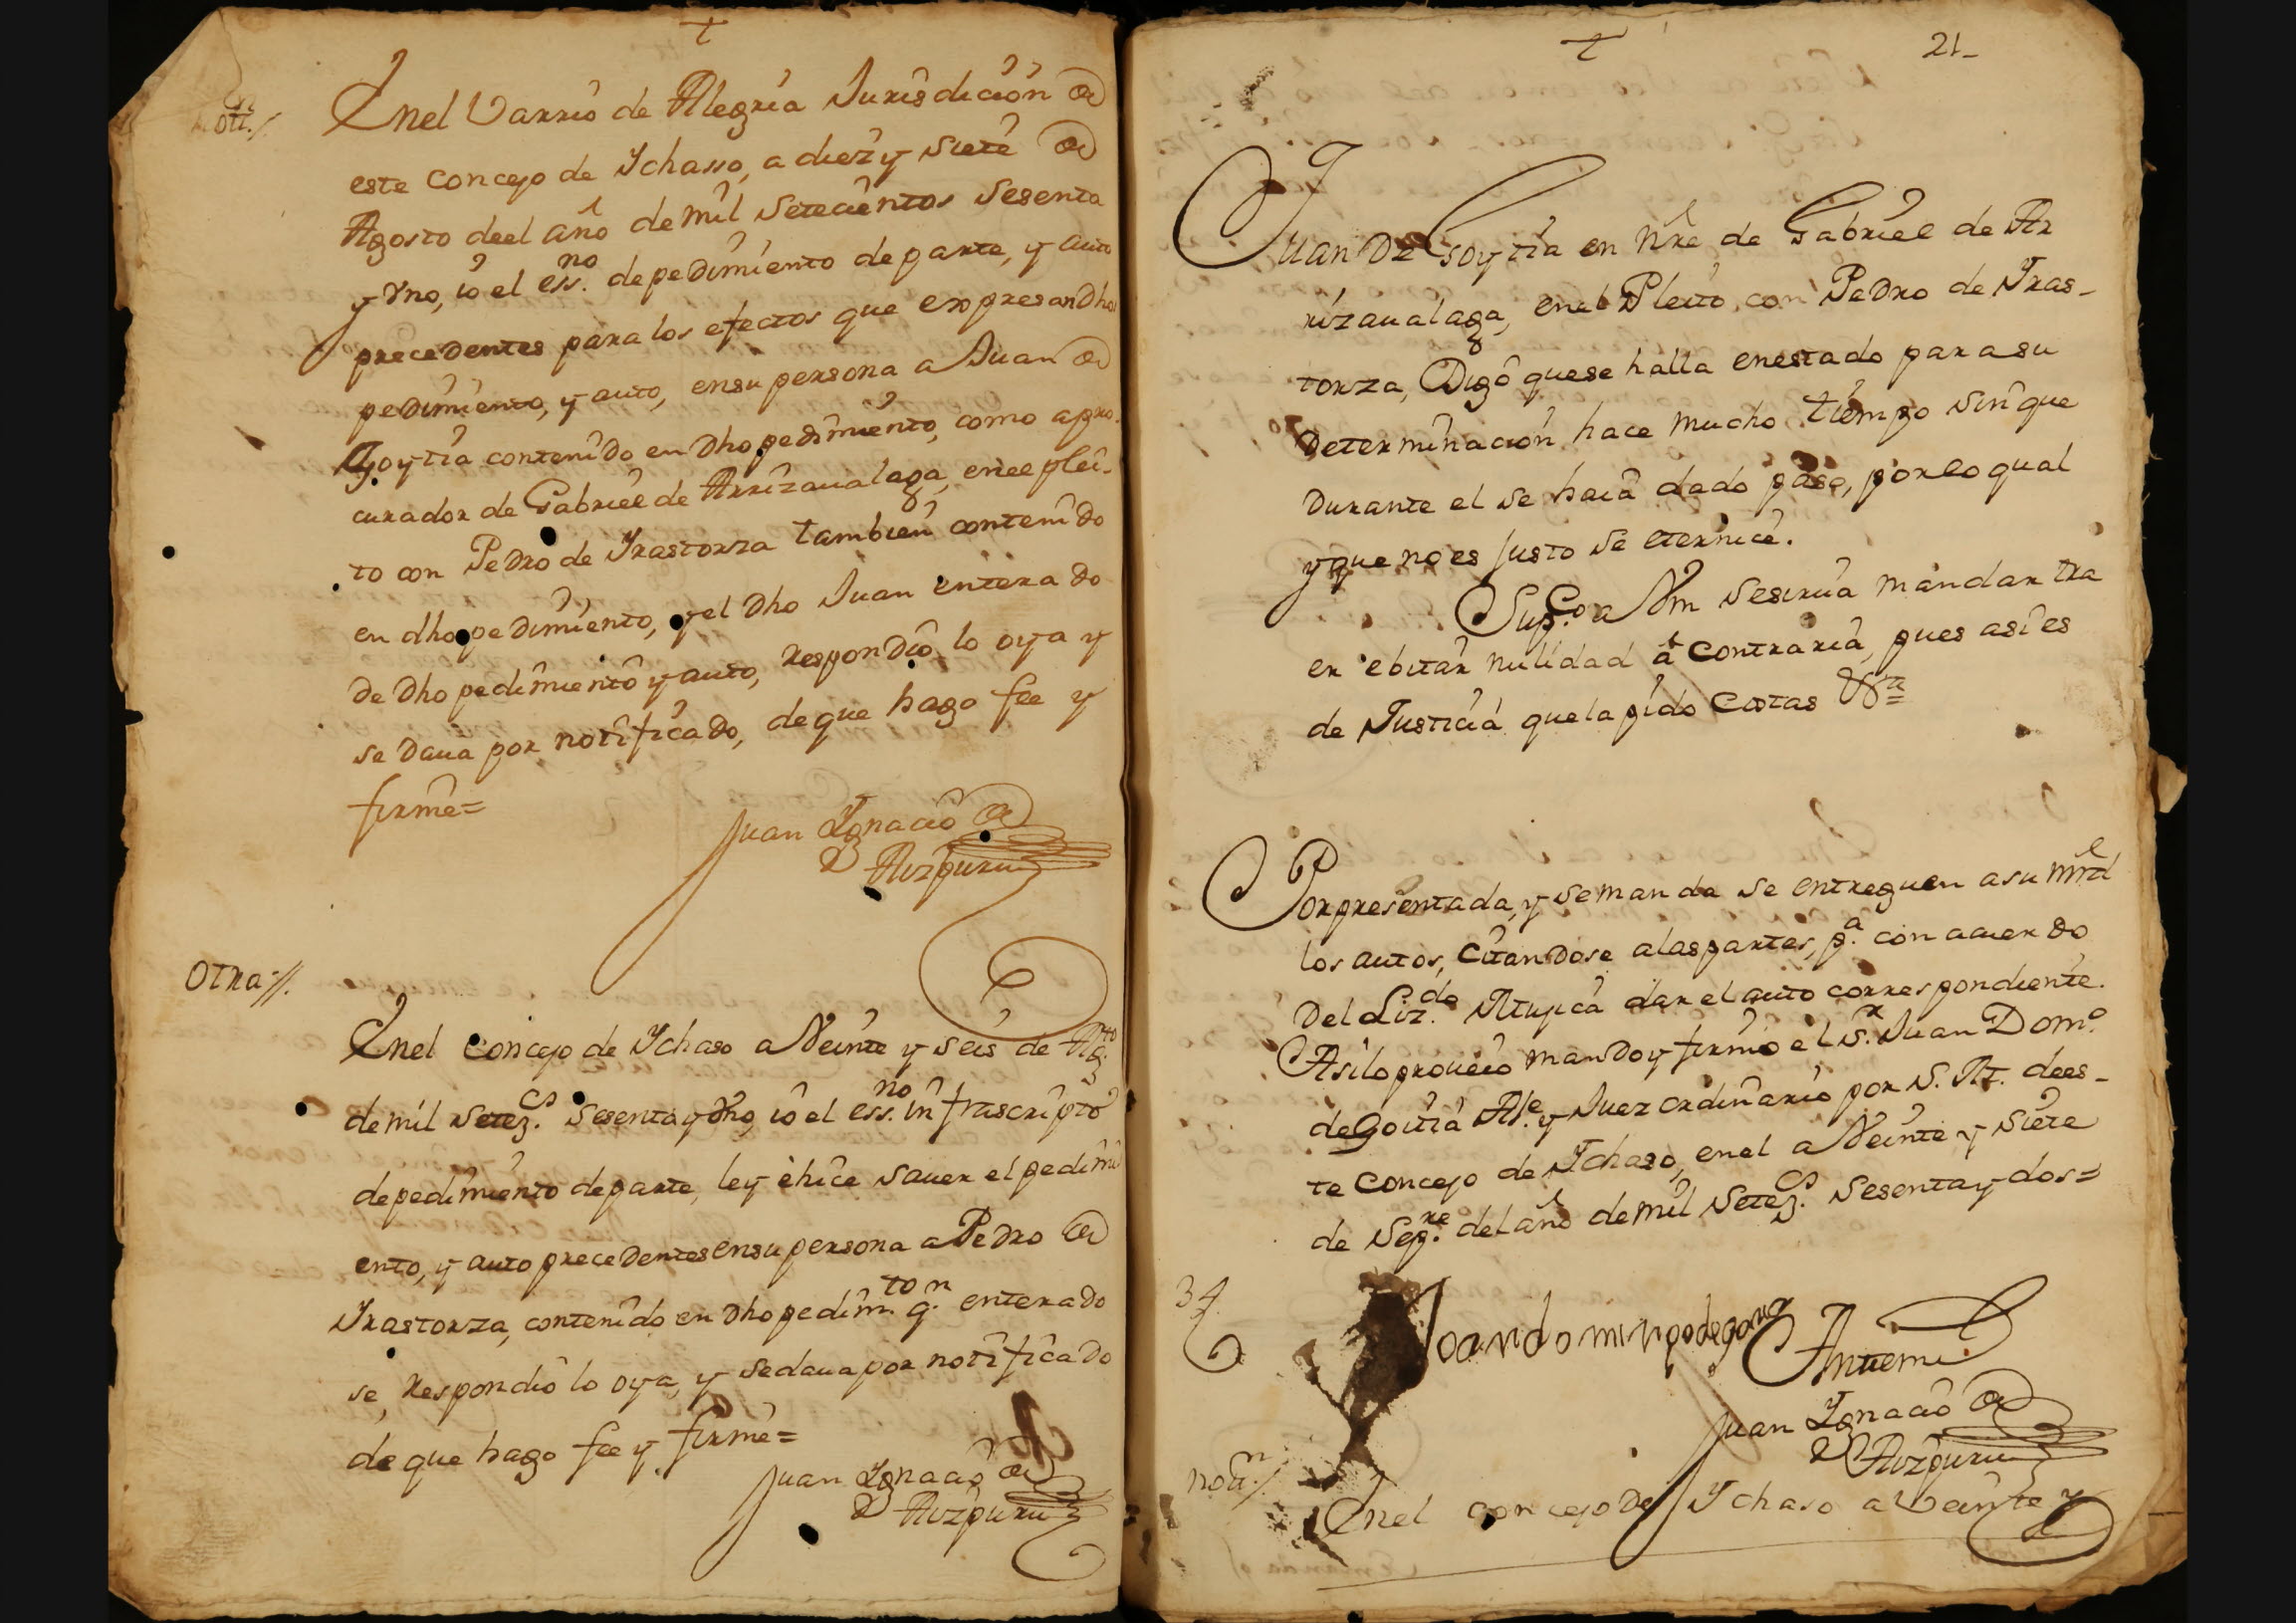 Notn./.
En el Varrio de Alegria Jurisdicion de
este concejo de Ychasso, a diez y siete de
Agosto deel año de mil setecientos sesenta
y Vno, io el essno. de pedimiento de parte, y auto
precedentes para los efectos que expresan Dho
pedimiento, y auto, en su persona a Juan de
Goytia contenido en Dho pedimiento, como apro-
curador de Gabriel de Arrizaualaga, en el plei-
to con Pedro de Yrastorza tambien contenido
en dho pedimiento, y el Dho Juan enterado
de Dho pedimiento y auto, respondio lo oya y
se daua por notificado, de que hago fee y
firme=
Juan Ygnacio de
Aizpuru
Otra//.
En el concejo de Ychaso a Veinte y seis de Agto
de mil setezcs. sesenta y Vno, io el essno. infrascripto
de pedimiento de parte, ley è hice sauer el pedimi
ento, y auto precedentes en su persona a Pedro de
Yrastorza, contenido en Dho pedimto. qn. enterado
se, respondio lo oya, y se daua por notificado
de que hago fee y firme=
Juan Ygnacio de
Aizpuru
21-
Juan de Goytia en nre de Gabriel de Ar
rizaualaga, en el Pleito con Pedro de Yras-
torza, Digo que se halla en estado para su
determinacion hace mucho tiempo sin que
durante el se haia dado paso, por lo qual
y que no es justo se eternice.
Supco. a Vm se sirua mandar tra
er ebitar nulidad â contraria, pues asi es
de Justicia que la pido Costas &ra=
Por presentada, y se manda se entreguen a su mrd
los autos, citandose a las partes, pa. con acuerdo
del Lizdo. Atupca dar el auto correspondiente.
Asi lo proueio mando y firmo el sr. Juan Domo.
de Goitia Ale. y Juez ordinario por S. M. de es-
te concejo de Ychaso, en el a Veinte y siete
de Sepre. del año de mil setezcs. sesenta y dos=
34
Joan domingo de goitia
Antemi
Juan Ygnacio de
Aizpuru
notn./.
En el concejo de Ychaso a Veinte y